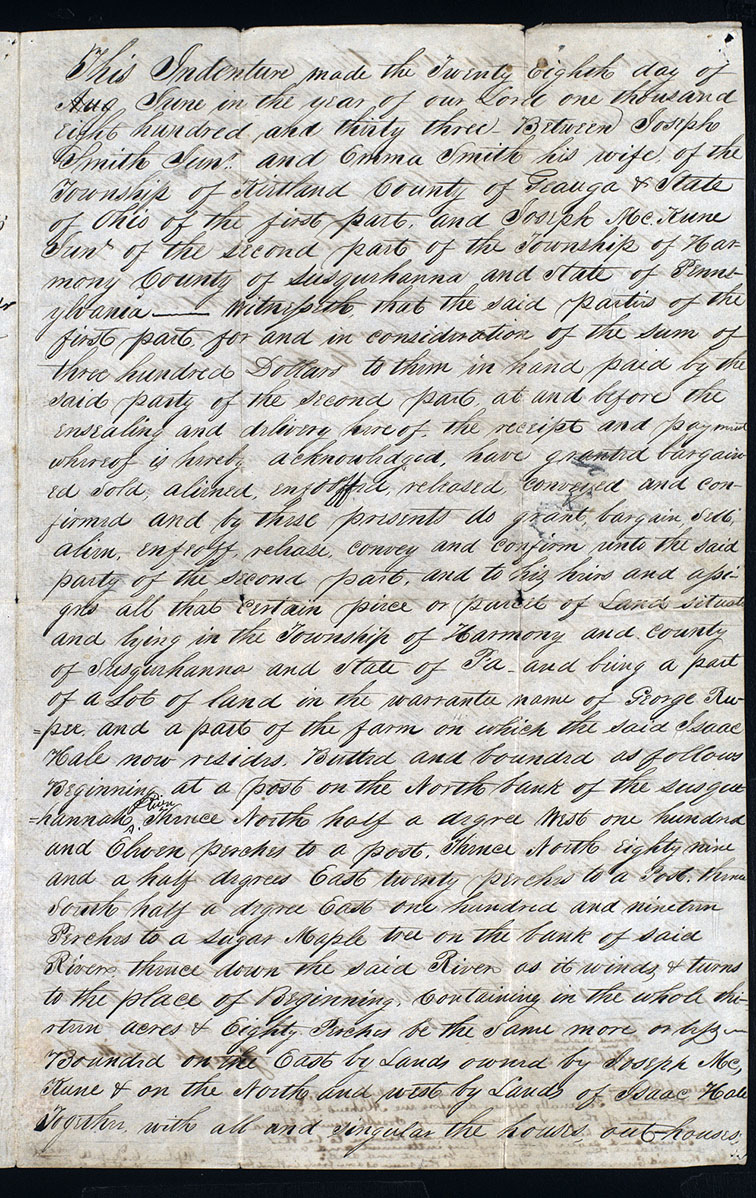 This Indenture made the Twenty Eighth day of
Aug June in the year of our Lord one thousand
eight hundred and thirty three- Between Joseph
Smith Junr. and Emma Smith his wife, of the
Township of Kirtland County of Geauga & State
of Ohio of the first part, and Joseph Mc. Kune
Junr of the second part of the Township of Har-
mony County of Susquehanna and State of Penns-
ylvania —— Witnesseth that the said parties of the
first part, for and in consideration of the sum of
three hundred Dollars to them in hand paid by the
said party of the second part at and before the
ensealing and delivery hereof, the receipt and payment
whereof is hereby acknowledged, have granted bargain-
ed sold, aliened, enfeoffed, released, conveyed and con-
firmed and by these presents do grant, bargain, sell,
alien, enfeoff, release, convey and confirm unto the said
party of the second part, and to his heirs and assi-
gns all that certain piece or parcel of Land situate
and lying in the Township of Harmony and County
of Susquehanna and State of Pa- and being a part
of a Lot of land in the warrantee name of George Ru-
=per, and a part of the farm on which the said Isaac
Hale now resides. Butted and bounded as follows
Beginning at a post on the North bank of the Susque
=hannah River, Thence North half a degree West one hundred
and Eleven perches to a post, Thence North eighty nine
and a half degrees East twenty perches to a Post, thence
South half a degree East one hundred and nineteen
Perches to a sugar Maple tree on the bank of said
River, thence down the said River as it winds & turns
to the place of Beginning, Containing in the whole thi-
rteen acres & Eighty Perches be the same more or less –
Bounded on the East by Lands owned by Joseph Mc,
Kune & on the North and west by Lands of Isaac Hale
Together, with all and singular the houses, out houses,